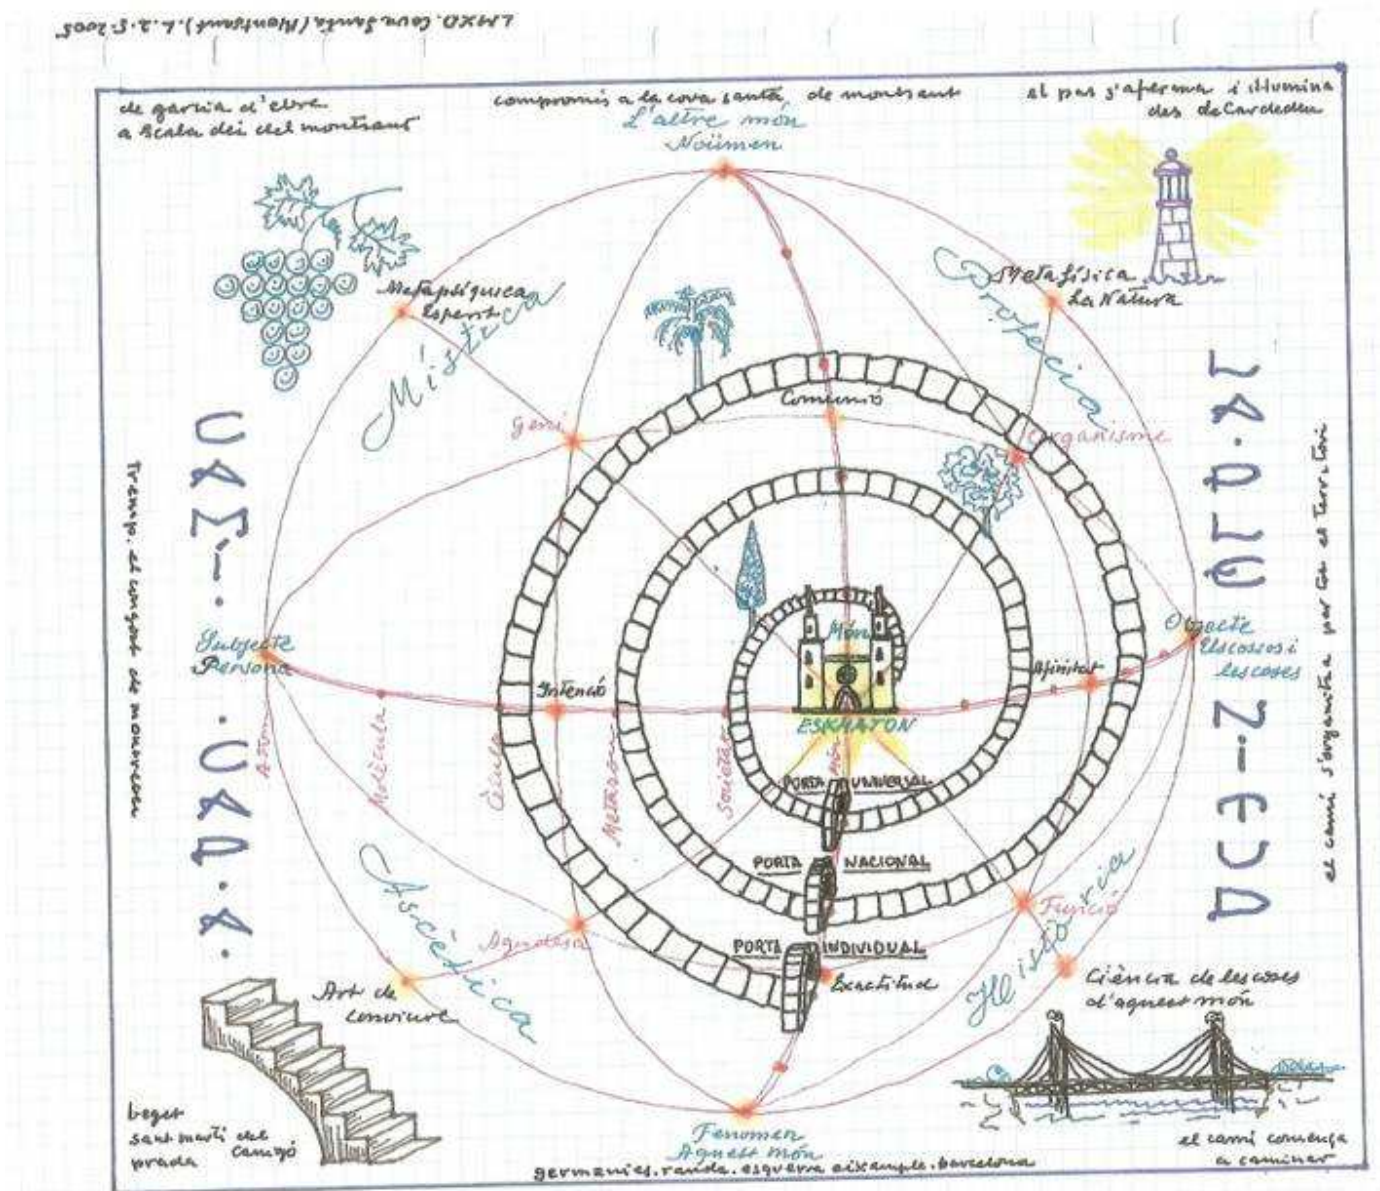 LMXD. Cova Santa (Montsant). L. 2.5.2005
de garcia d'ebre
a Scala dei del montsant
compromís a la cova santa de montsant
el pas s'aferma i il·lumina
des de Cardedeu
L'altre món
Noümen
Metapsíquica
Esperit
Mística
Metafísica
La Natura
Profecia
Comunió
Geni
Organisme
el camí s'organitza per tot el territori
Tremp. el congost de montrebei
Subjecte
Persona
Objecte
Els cossos i
les coses
Món
Intenció
Afinitat
ESKHATON
Àtom
Molècula
Cèl·lula
Metazou
Societat
Món
PORTA UNIVERSAL
PORTA NACIONAL
PORTA INDIVIDUAL
Ascètica
Història
Agudesa
Funció
Exactitud
Art de
conviure
Ciència de les coses
d'aquest món
beget
sant martí del
prada Canigó
Fenomen
Aquest món
germanies. randa. esquerra eixample. barcelona
el camí comença
a caminar